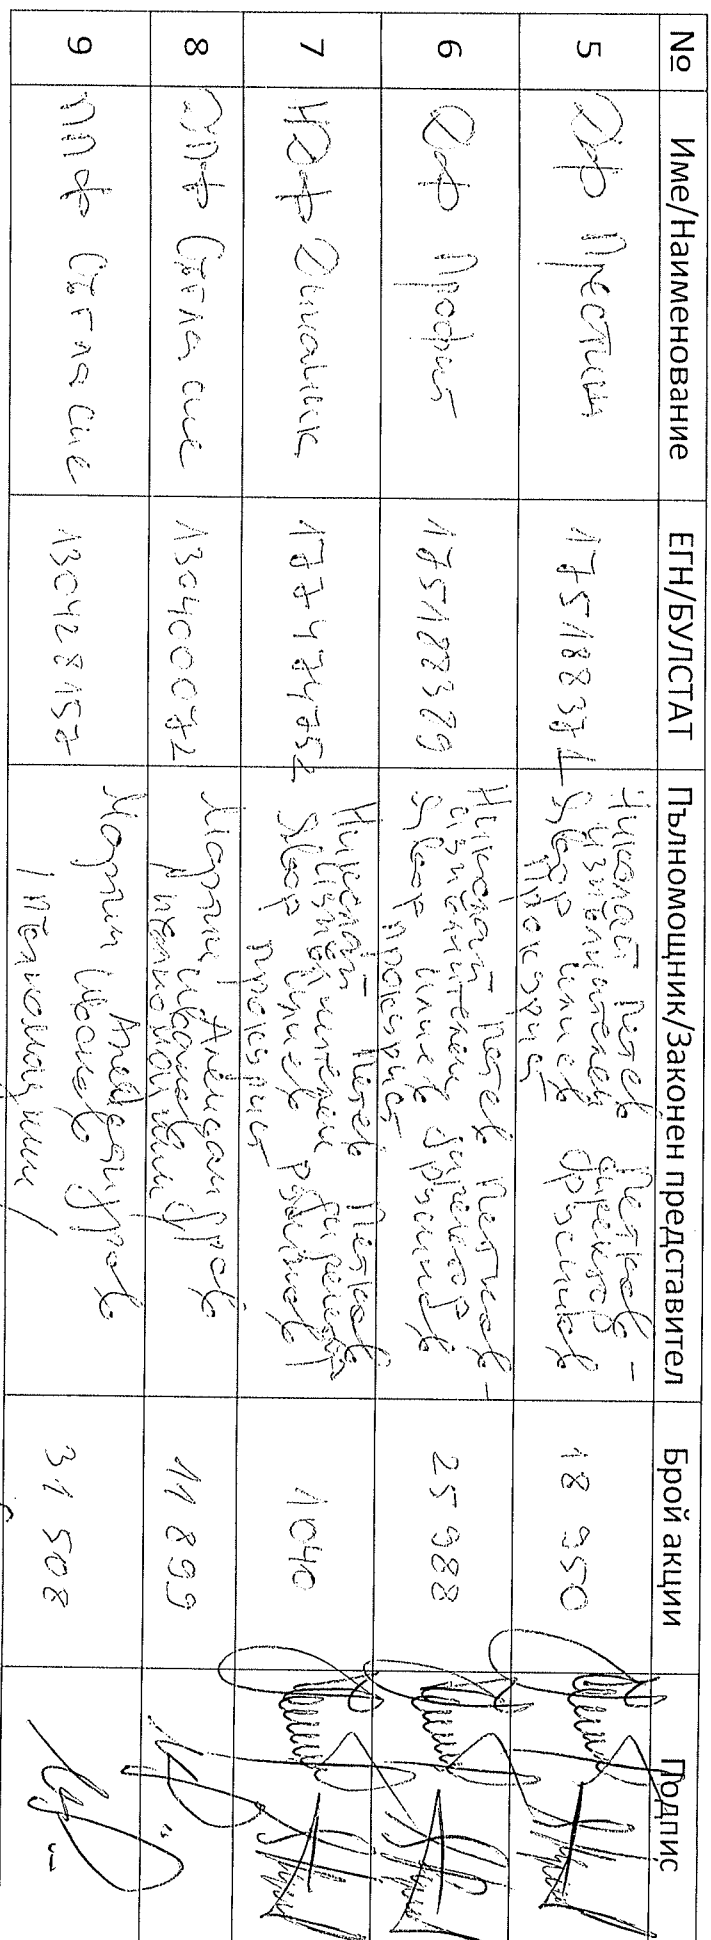 № Име/Наименование ЕГН/БУЛСТАТ Пълномощник/Законен представител Брой акции Подпис
5 ДФ Престиж 175188371 Николай Петев Петков -
изпълнителен директор
Явор Илиев Русинов
прокурист 18 950
6 ДФ Профит 175188389 Николай Петев Петков -
изпълнителен директор
Явор Илиев Русинов
прокурист 25 988
7 НДФ Динамик 177474752 Николай Петев Петков
изпълнителен директор
Явор Илиев Русинов
прокурист 1040
8 Съгласие 130400072 Мартин Александров
Иванов
пълномощник 11 899
9 ППФ Съгласие 130428157 Мартин Александров
Иванов
/пълномощник/ 31 508